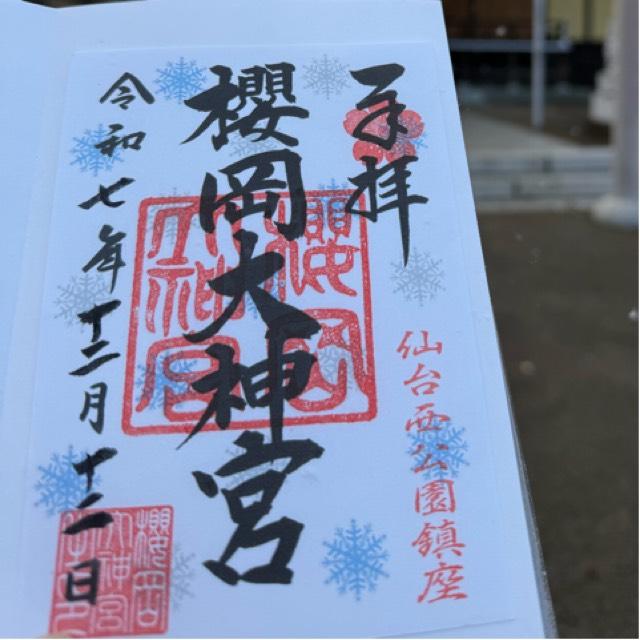 奉拝
仙台西公園鎮座
櫻岡大神宮
令和七年十二月十二日
櫻岡
大神宮